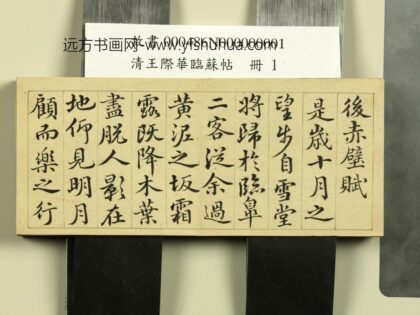 故畫 000486N000000001
远方书画网-www.yfshuhua.com
清王際華臨蘇帖 冊 1
後赤壁賦
是歲十月之
望步自雪堂
將歸於臨皋
二客從余過
黃泥之坂霜
露既降木葉
盡脫人影在
地仰見明月
顧而樂之行